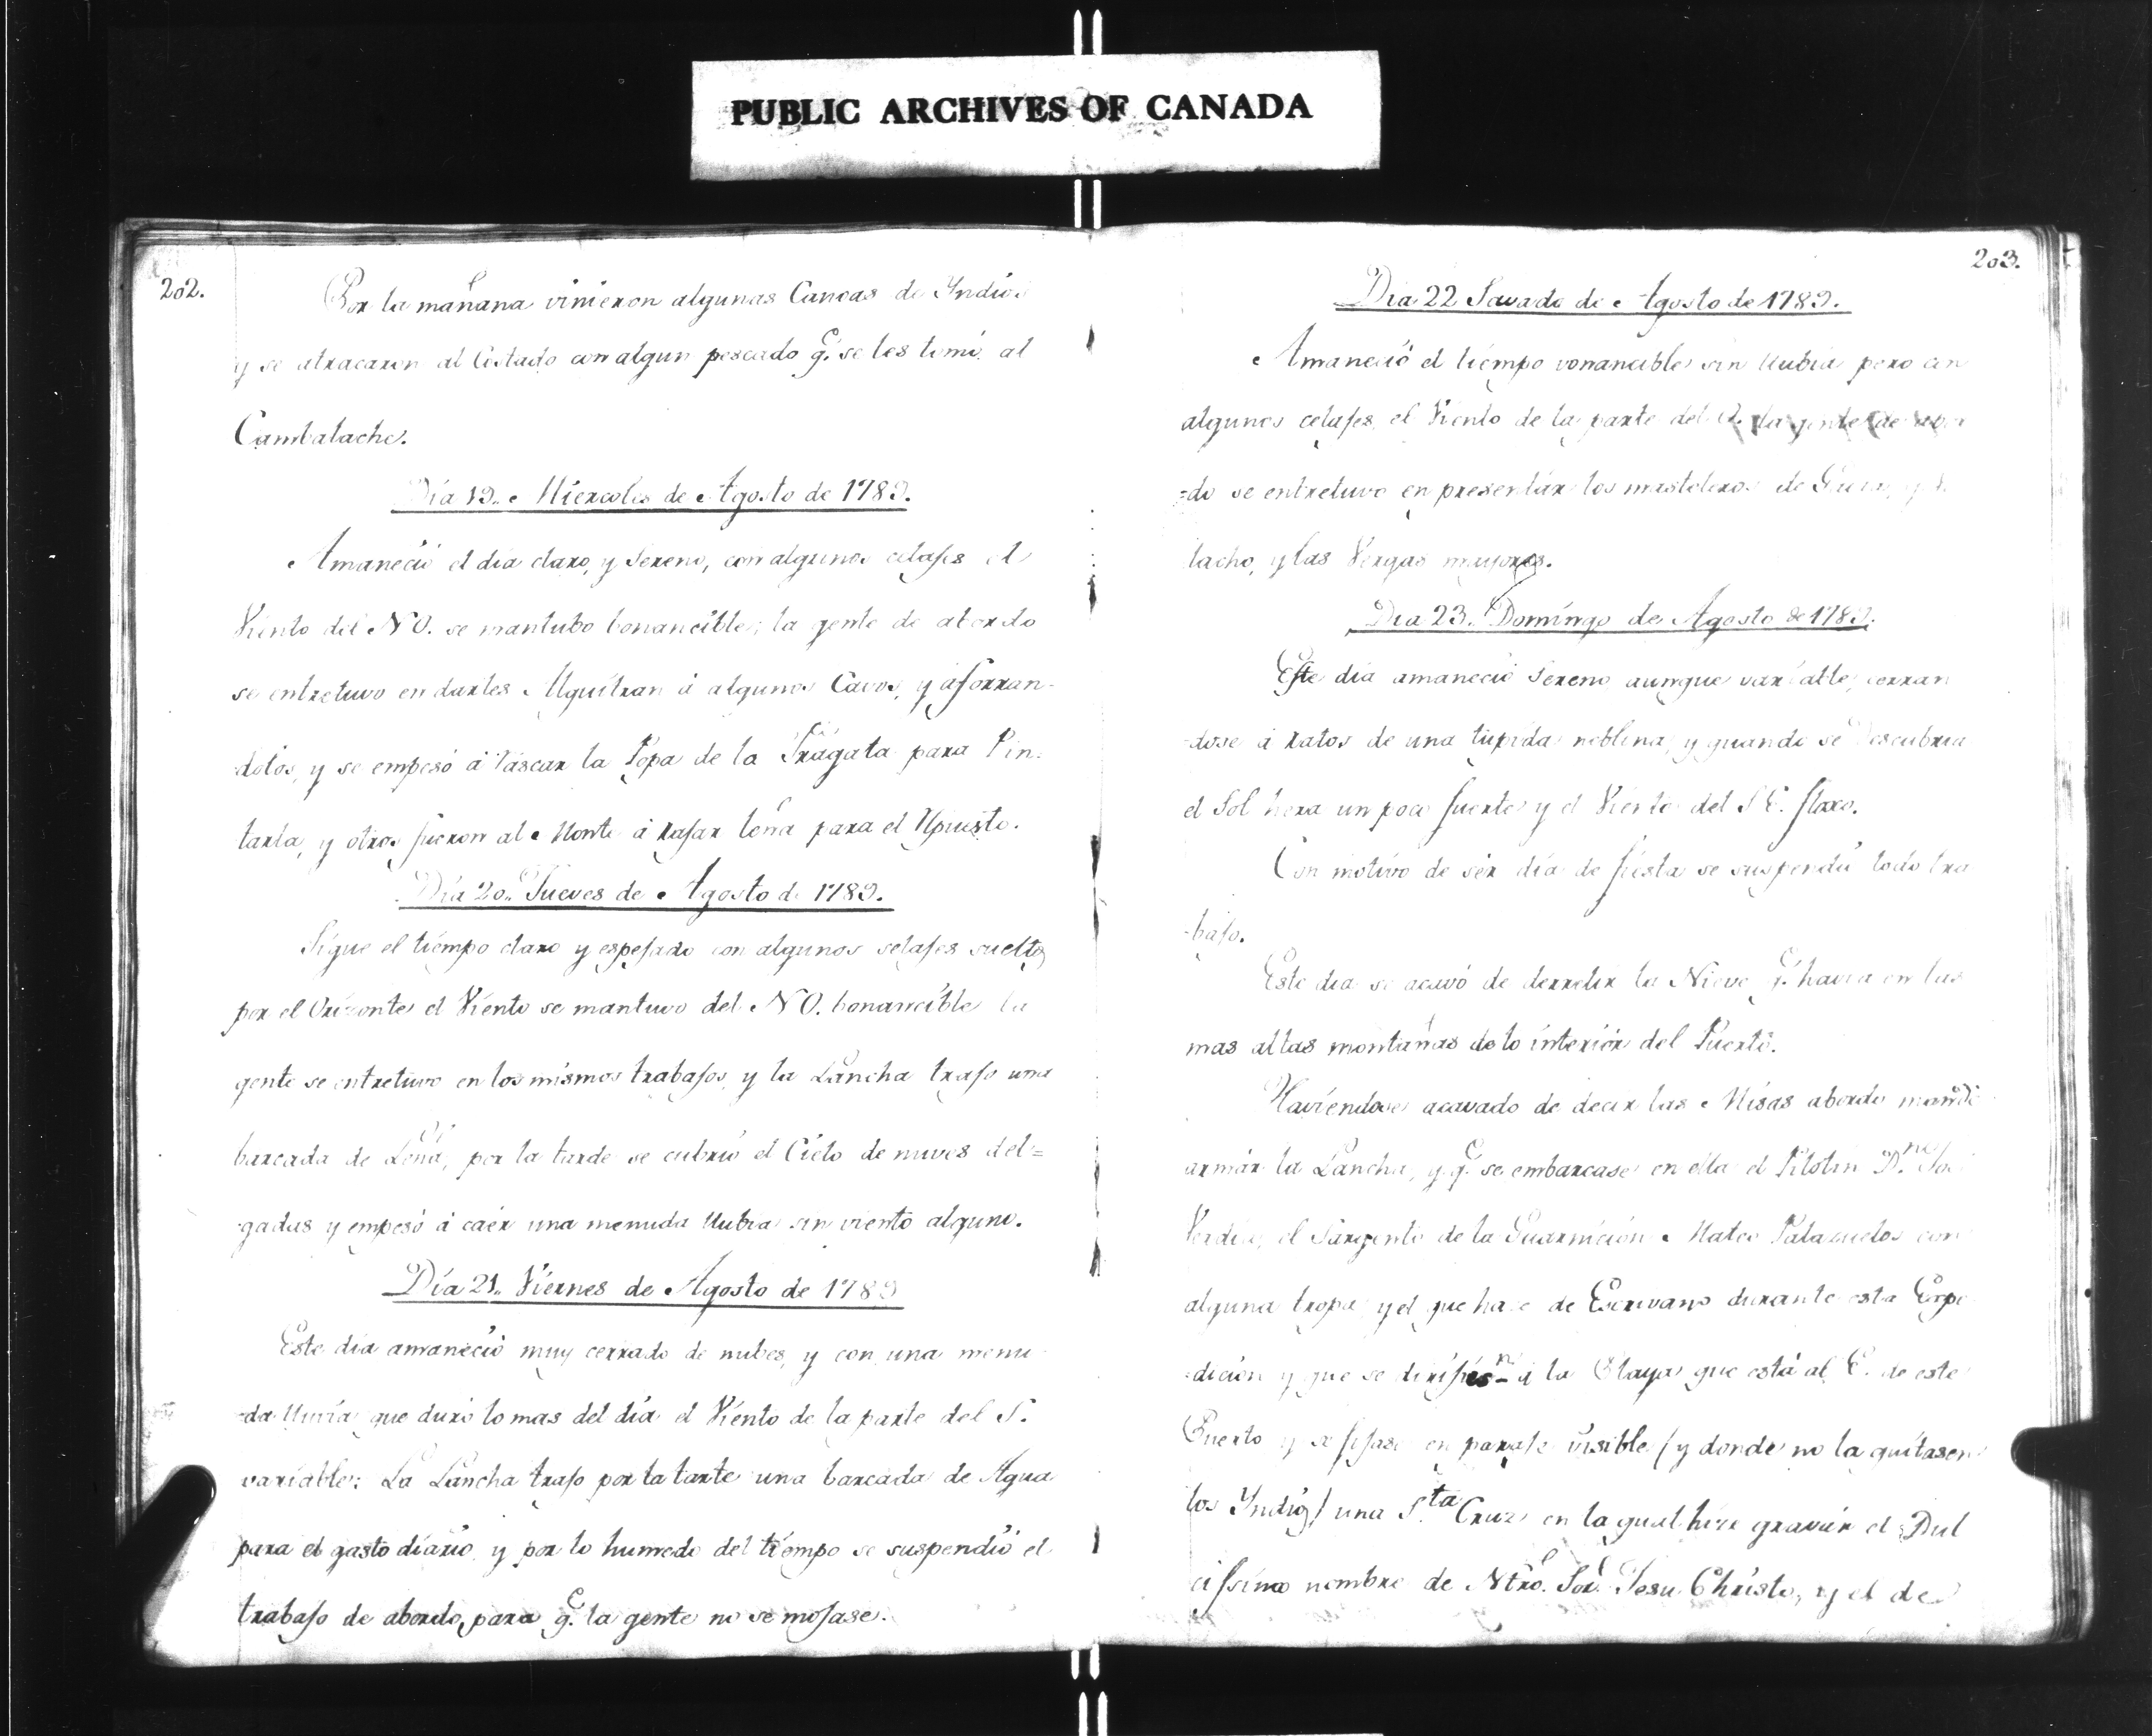 PUBLIC ARCHIVES OF CANADA
202.
Por la mañana vinieron algunas Canoas de Yndios
y se atracaron al Costado con algun pescado q.e se les tomó al
Cambalache.
Día 19.. Miercoles de Agosto de 1789.
Amaneció el dia claro, y Sereno, con algunos celajes el
Viento del NO. se mantubo bonancible; la gente de abordo
se entretuvo en darles Alquitran á algunos Cavos, y aforran-
dolos, y se empesó á Rascar la Popa de la Fragata para Pin-
tarla, y otros fueron al Monte á rajar leña para el Repuesto.
Día 20.. Jueves de Agosto de 1789.
Sigue el tiempo claro y espejado con algunos selajes sueltos
por el Orizonte el Viento se mantuvo del NO. bonancible la
gente se entretuvo en los mismos trabajos, y la Lancha trajo una
barcada de Leña, por la tarde se cubrió el Cielo de nuves del=
-gadas y empesó á caér una menuda llubia sin viento alguno.
Día 21.. Viernes de Agosto de 1789
Este dia amaneció muy cerrado de nubes, y con una menu-
-da lluvia que duró lo mas del día el Viento de la parte del S.
variable: La Lancha trajo por la tarte una barcada de Agua
para el gasto diario, y por lo humedo del tiempo se suspendió el
trabajo de abordo, para q.e la gente no se mojase.
203.
Dia 22 Savado de Agosto de 1789.
Amaneció el tiempo vonancible sin llubia pero con
algunos celajes, el Viento de la parte del la gente de abor
=do se entretuvo en presentár los masteleros de
lacho, y las Vergas mayores.
Dia 23. Domingo de Agosto de 1789.
Este dia amaneció Sereno aunque variable, cerran
-dose á ratos de una tupida neblina, y quando se descubria
el Sol hera un poco fuerte y el Viento del S E. floxo.
Con motivo de sér día de fiesta se suspendió todo tra
-bajo.
Este dia se acavó de derretir la Nieve q.e havia en las
mas altas montañas de lo interiór del Puerto.
Haviendose acavado de decir las Misas abordo mandé
armár la Lancha, y q.e se embarcase en ella el Pilotin D.n José
Verdia, el Sargento de la Guarnición Mateo Palazuelos con
alguna tropa y el que hace de Escrivano durante esta Expe
=dición y que se dirijiesn á la Playa que está al E. de este
Puerto y se fijase en paraje visible (y donde no la quitasen
los Yndios) una S.ta Cruz en la qual hize gravár el Dul
cissimo nombre de Ntro. Sor. Jesu Christo, y el de